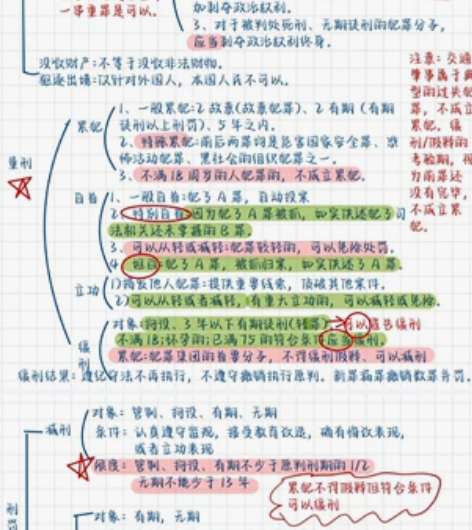 一半重罪是可以。
加剥夺政治权利。
3、对于被判处死刑、无期徒刑的犯罪分子，
应当剥夺政治权利终身。
没收财产：不等于没收非法财物。
驱逐出境：仅针对外国人，本国人员不可以。
注意：交通
肇事属于典
型的过失犯
罪，不成立
累犯，缓
刑/假释的
考验期，视
为刑罪还
没有完毕，
不成立累
犯。
量刑
累犯
1、一般累犯：2故意(故意犯罪)、2有期(有期
徒刑以上刑罚)、5年之内。
2、特殊累犯：前后两罪均是危害国家安全罪、恐
怖活动犯罪、黑社会的组织犯罪之一。
3、不满18周岁的人犯罪的，不成立累犯。
自首
1、一般自首：犯了A罪，自动投案
2、特别自首：因为犯了A罪被抓，如实供述犯了司
法机关还未掌握的B罪。
3、可以从轻或减轻；犯罪较轻的，可以免除处罚。
4、坦白：犯了A罪，被抓归案，如实供述了A罪。
立功
1)揭发他人犯罪：提供重要线索，侦破其他案件。
2)可以从轻或者减轻，有重大立功的，可以减轻或免除。
缓刑
对象：拘役、3年以下有期徒刑(轻罪)→可以宣告缓刑
不满18；怀孕的；已满75的符合条件应当缓刑。
累犯：犯罪集团的首要分子，不得缓刑假释、可以减刑
缓刑结果：遵纪守法不再执行，不遵守撤销执行原判。新罪漏罪撤销数罪并罚。
减刑
对象：管制、拘役、有期、无期
条件：认真遵守监规，接受教育改造，确有悔改表现，
或者立功表现
限度：管制、拘役、有期不少于原判刑期的1/2
无期不能少于13年
累犯不得假释但符合条件
可以减刑
刑罚
对象：有期，无期